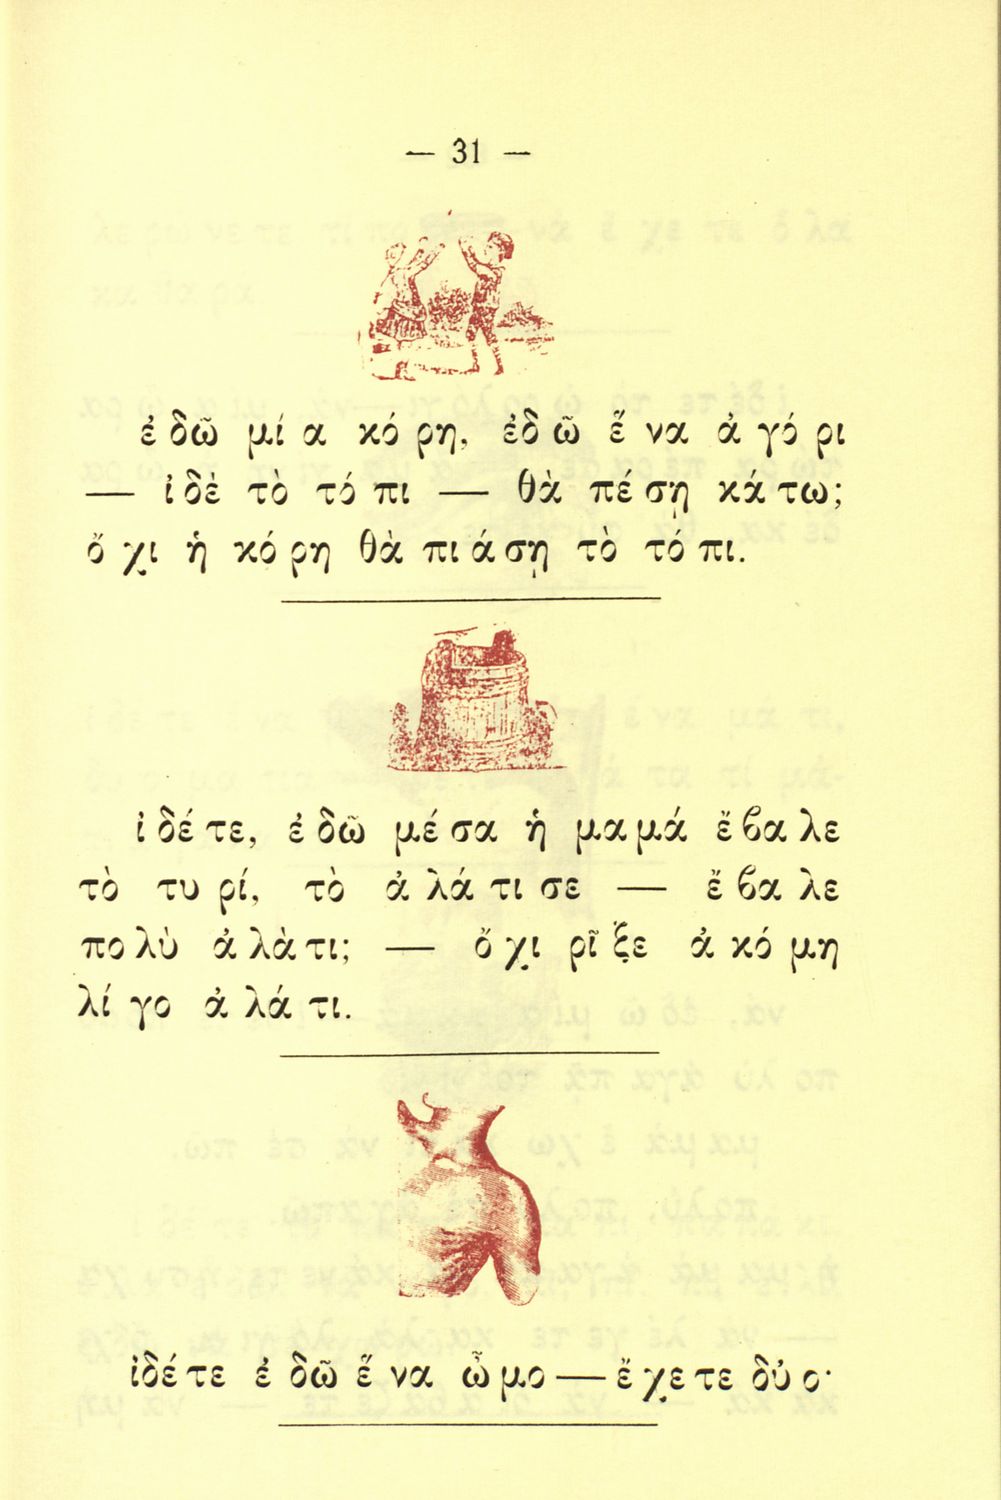 — 31 —
ἐ δῶ μί α κό ρη, ἐδ ῶ ἕ να ἀ γό ρι
— ἰδὲ τὸ τό πι — θὰ πέ σῃ κά τω;
ὄ χι ἡ κό ρη θὰ πι ά σῃ τὸ τό πι.
ἰ δέ τε, ἐ δῶ μέ σα ἡ μα μά ἔ ϐα λε
τὸ τυ ρί, τὸ ἀ λά τι σε — ἔ ϐα λε
πο λὺ ἀ λὰ τι; — ὄ χι ρῖ ξε ἀ κό μη
λί γο ἀ λά τι.
ἰδέ τε ἐ δῶ ἕ να ὦ μο — ἔ χε τε δύ ο·